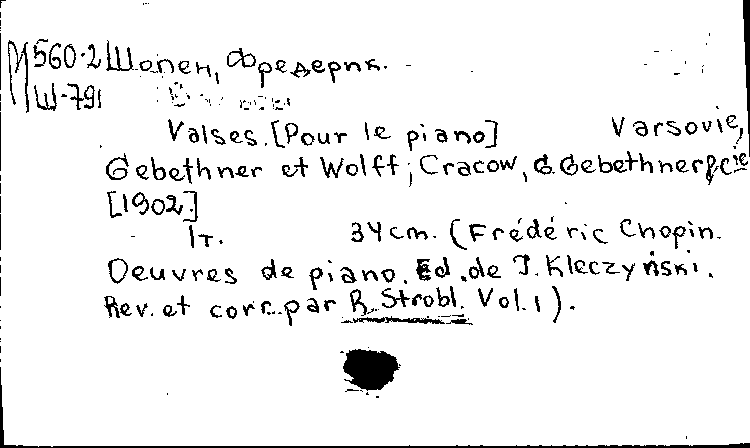 М560-2 Шопен, Фредерик.
Ш-791
Valses. [Pour le piano] Varsovie,
Gebethner et Wolff; Cracow, G. Gebethner & cie
[1902.]
1т. 34cm. (Frédéric Chopin.
Oeuvres de piano. Ed. de J. Kleczyński.
Rev. et corr. par R. Strobl. Vol. 1).